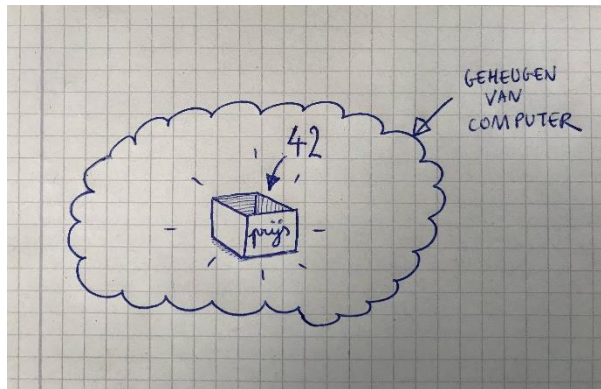 GEHEUGEN
VAN
COMPUTER
42
prijs